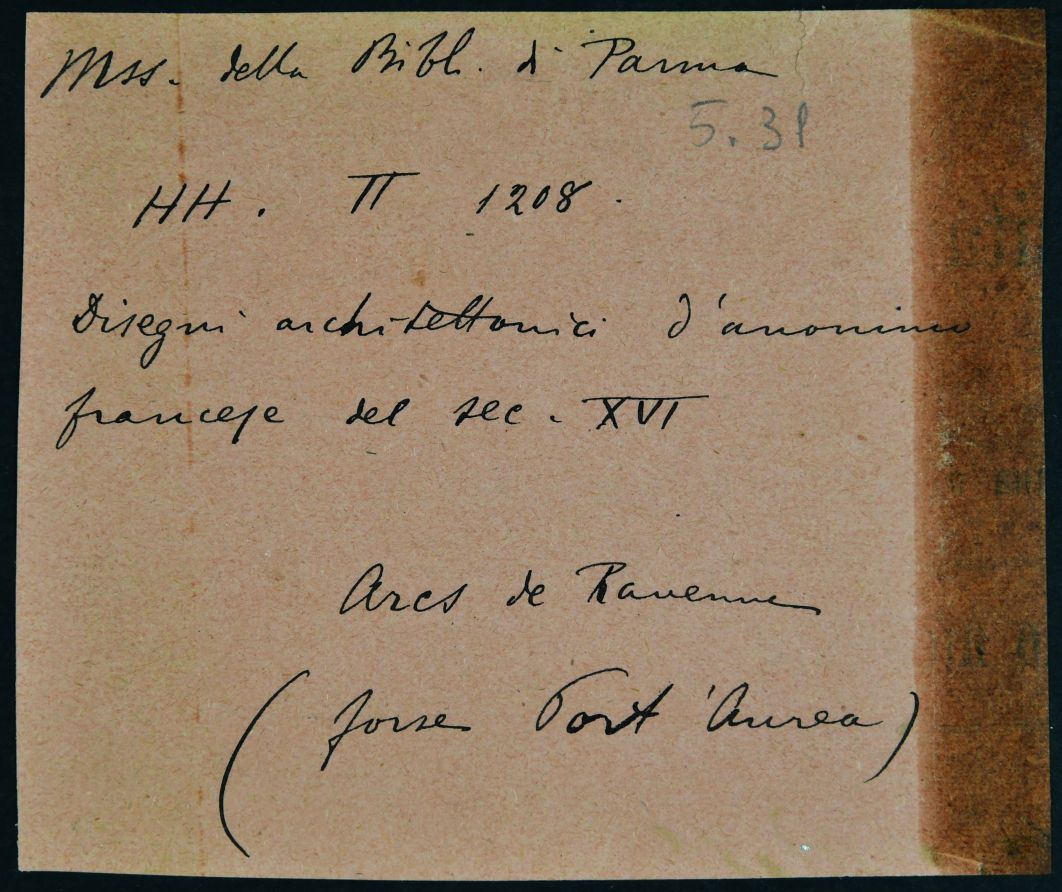 Mss. della Bibl. di Parma
5.31
HH. II 1208.
Disegni architettonici d'anonimo
francese del sec. XVI
Arcs de Ravenne
(forse Port'Aurea)